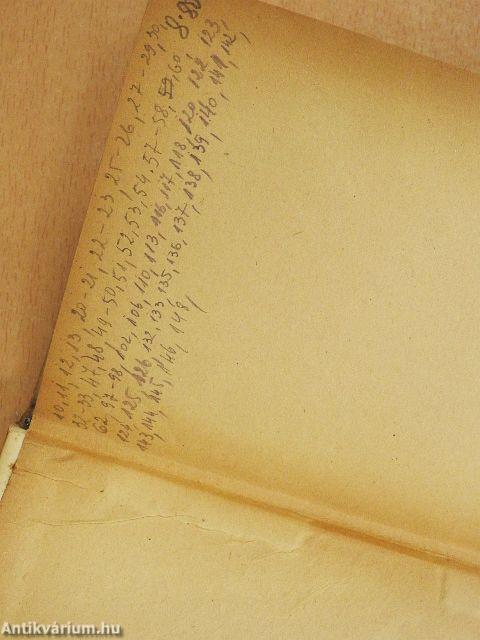 8.80
10, 11, 12, 13, 20-21, 22-23, 25-26, 27-29, 30,
32-33, 47, 48, 49-50, 51, 52, 53, 54, 57-58, 59, 60
62, 97-98, 102, 106, 110, 113, 116, 117, 118, 120, 122, 123,
124, 125, 126, 132, 133, 135, 136, 137, 138, 139, 140, 141, 142,
143, 144, 145, 146, 148,
Antikvárium.hu